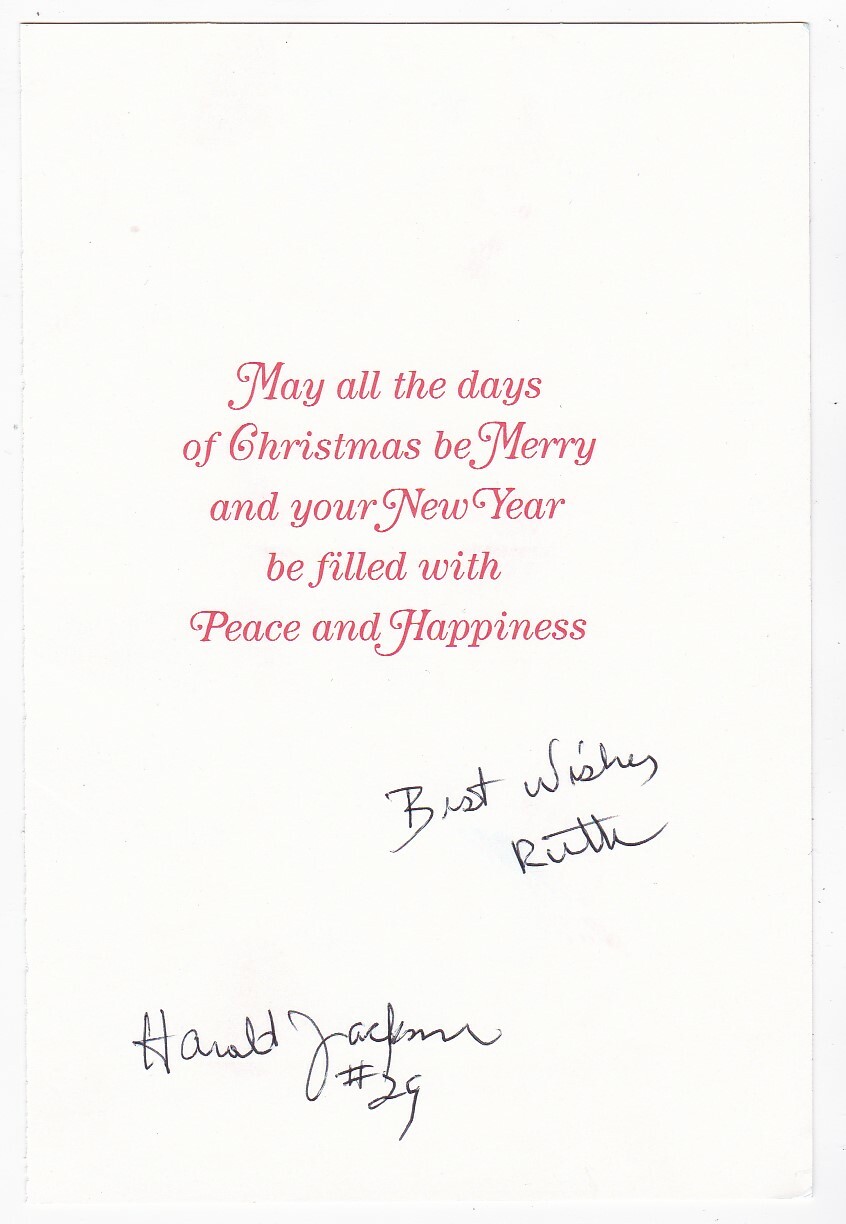 May all the days
of Christmas be Merry
and your New Year
be filled with
Peace and Happiness
Best Wishes
Ruth
Harold Jackson
#29